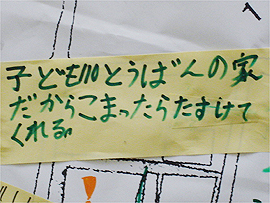 子ども110とうばんの家
だからこまったらたすけて
くれる。